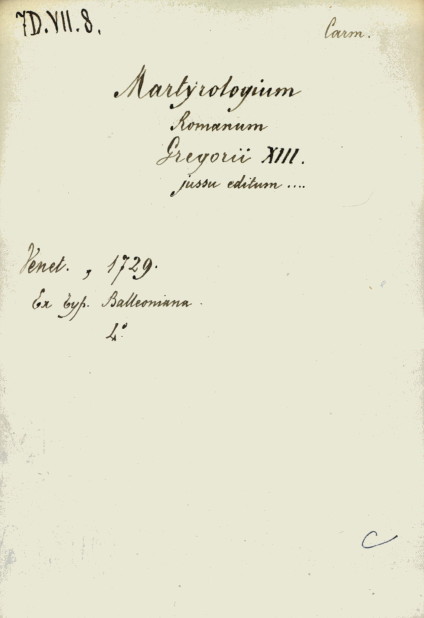 7D.VII.8.
Carm.
Martyrologium
Romanum
Gregorii XIII.
jussu editum ....
Venet., 1729.
Ex typ. Balleoniana.
4°
C